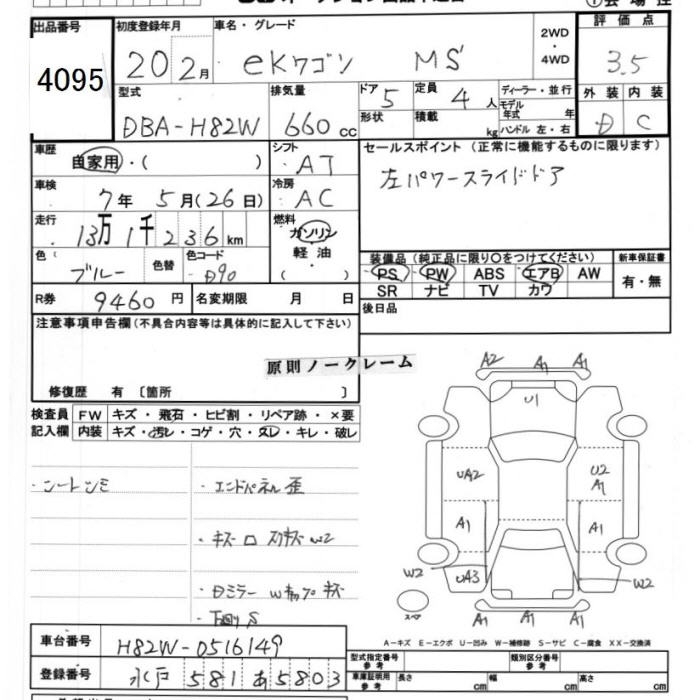 出品番号 初度登録年月 車名・グレード 2WD ・ 4WD 評価点
4095 20 2月 eKワゴン MS 3.5
型式 排気量 ドア 5 定員 4人 ディーラー・並行 外装 内装
DBA-H82W 660cc 形状 積載 kg モデル年式 年 ハンドル 左・右 D C
車歴 自家用・( ) シフト AT セールスポイント (正常に機能するものに限ります)
車検 7年 5月(26日) 冷房 AC 左パワースライドドア
走行 13万1千236km 燃料 ガソリン 軽油 ( )
色 ブルー 色替 色コード D90
装備品 (純正品に限り○をつけてください) 新車保証書
PS PW ABS エアB AW 有・無
SR ナビ TV カワ
R券 9460円 名変期限 月 日 後日品
注意事項申告欄(不具合内容等は具体的に記入して下さい)
原則ノークレーム
修復歴 有 〔箇所 〕
検査員 FW キズ・飛石・ヒビ割・リペア跡・×要
記入欄 内装 キズ・汚レ・コゲ・穴・ヌレ・キレ・破レ
・シートシミ ・エンドパネル歪
・Dミラー
・下回りS
A2 A1 A1
U1
UA2 U2 A1
A1 A1
W2 UA3 W2
スペア A1 A1 A1
A-キズ E-エクボ U-凹み W-補修跡 S-サビ C-腐食 XX-交換済
車台番号 H82W-0516149
型式指定番号 参考 類別区分番号 参考
登録番号 水戸 581 あ5803
車庫証明用 参考 長さ cm 幅 cm 高さ cm